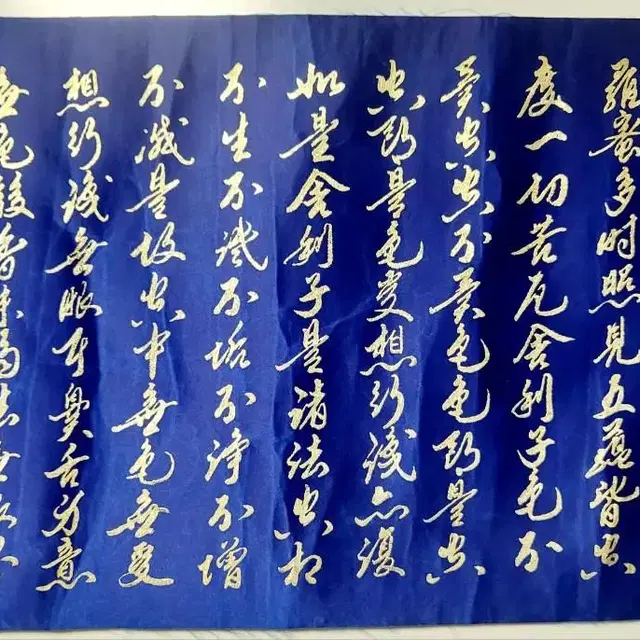 羅蜜多時照見五蘊皆空
度一切苦厄舍利子色不
異空空不異色色即是空
空即是色受想行識亦復
如是舍利子是諸法空相
不生不滅不垢不淨不增
不減是故空中無色無受
想行識無眼耳鼻舌身意
無色聲香味觸法無